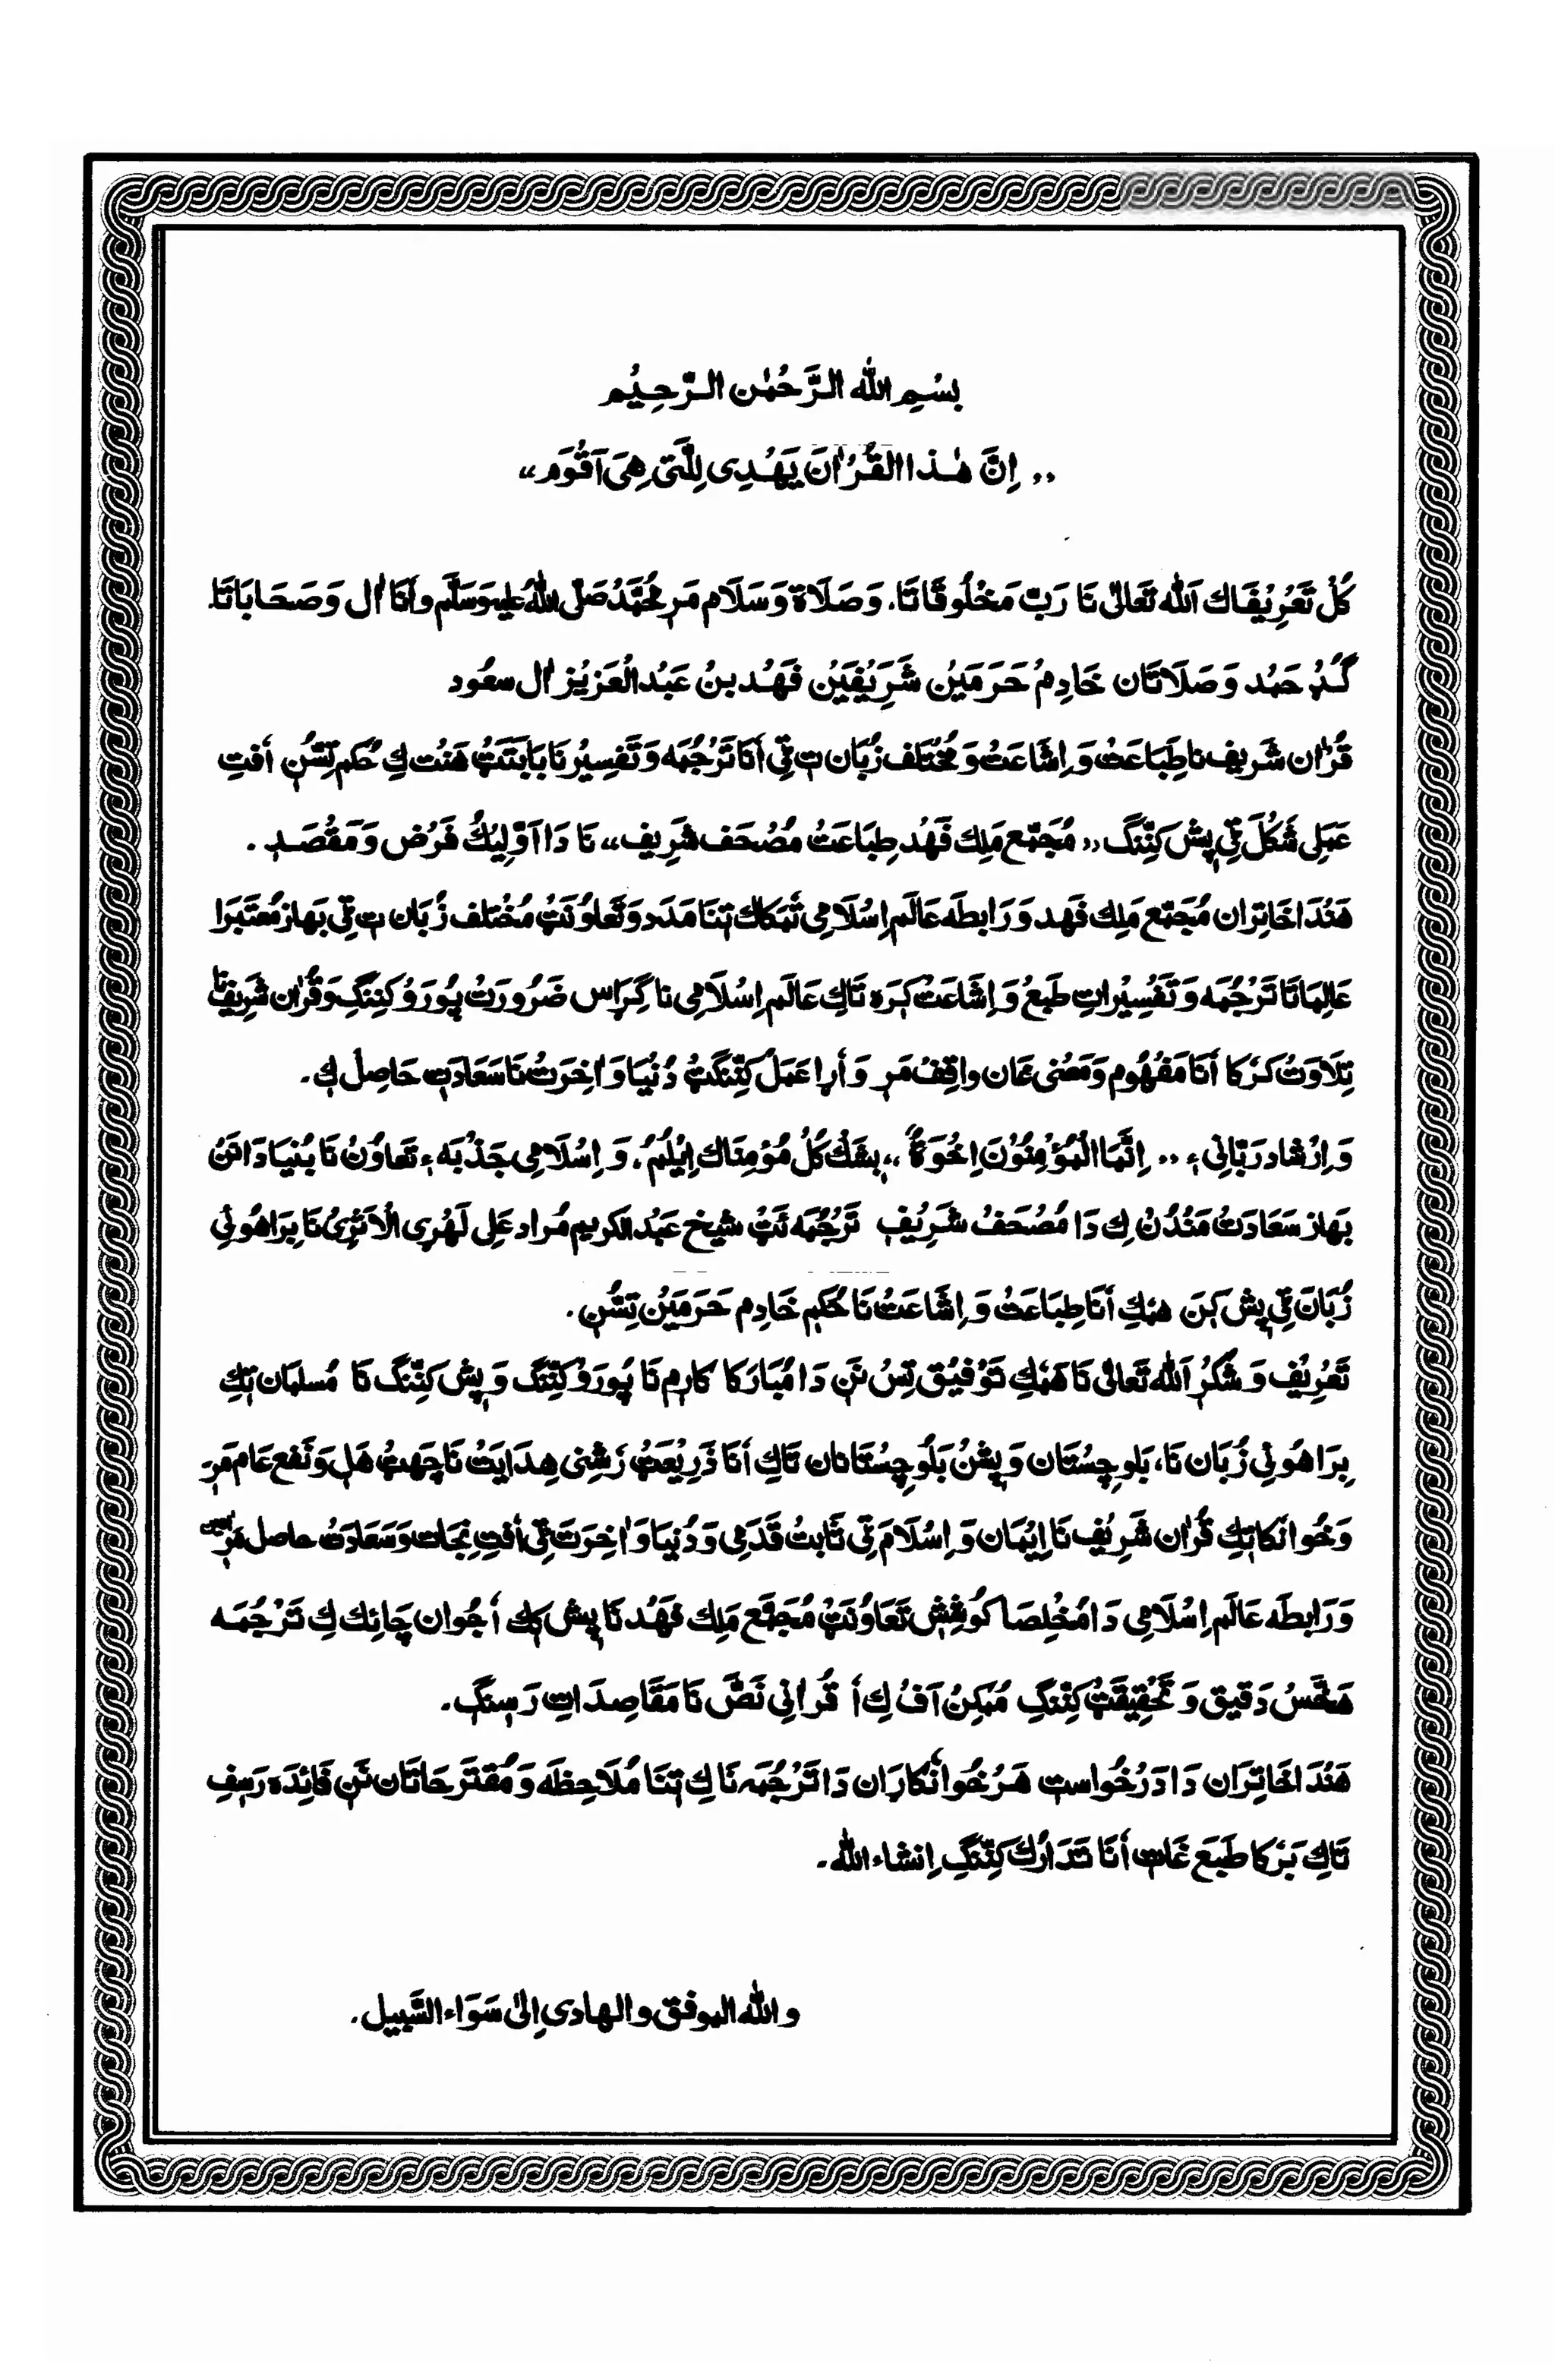 بِسْمِ اللّٰه الرَّحْمٰن الرَّحِيْم
,, اِنَّ هٰذَا الْقُرْاٰنَ يَهْدِى لِلَّتِى هِىَ اَقْوَم ،،
كُلْ تَعْرِيْفَاك اَللّٰه تَعَالىٰ نَا رَبّ مَخْلُوقَاتَا. وَ صَلَاة وَ سَلَام مَرٖ مُحَمَّد صَلّى اللّٰهُ عليه وَسَلَّم و اَنَا اٰل وَ صَحَابَاتَا.
گُڈٖ حَمْد وَ صَلَاتَان خَادِمُ حَرَمَيْن شَرِيْفَيْن فَهْد بنُ عَبْدُ الْعَزِيْز اٰل سعُود
قُرْاٰن شَرِيف نا طِبَاعَتْ وَ اِشَاعَتْ وَ مُخْتَلف زُبَان تٖ ٹِی اَنَا تَرْجُمَه وَ تَفسِيْر نَا بَابَتَٹْ هَنْت كِ حُكم تِسُّنٖ اُفتِ
عَمَلِى شَكْلَ ٹِی پٖش كِنِّنگ ,, مُجَمَّع مَلِك فَهْد طِبَاعَتُ مُصْحَف شَرِيف ،، نَا دَا اَوَّلِيْكُ فَرْض وَ مَقْصَدٖ .
هَنْدَا خَاتِران مُجَمَّع مَلِك فَهْد وَ رَابطَه عَالَم اِسْلَامِى تٖنَا مَدَد وَ تَعاوُنَٹْ مُخْتَلف زُبَان تٖ ٹِی بَهاز مُعتَبَرَا
عَالِمَاتَا تَرْجُمَه وَ تَفْسِيْراتِ طَبعْ وَ اِشَاعَتْ كٖرَه تَاكِ عَالَم اِسْلَامِى نا ضَرُورَتْ پُورَوْ كِنِنگ وَ قُرْاٰن شَرِيفنَا
تِلَاوَتْ كَرْكَا اَنَا مَفْهُوم وَ مَعْنٰى غَان واقِفْ مَرٖ وَ اُرا عَمَلْ كِنِّنگٹْ دُنْيَا وَ اٰخِرَتْ نَا سَعَادَتٖ حَاصِل كٖ.
وَ اِرْشاد رَبّانِی ءِ ,, اِنَّمَا الْمُؤْمِنُوْنَ اِخْوَةٌ ،، بٖشَكْ كُلْ مُؤمِنَاك اِيْلُمُ. وَ اِسْلَامِى جَذْبَه ءِ تَعَاوُن نَا بُنْيَاد دَانَنْ
بَهاز سَعَادَتْ مَنْدُنْ كِ دَا مُصْحَفْ شَرِيْفٖ تَرْجُمَه تَٹْ شيخ عَبْدُ الكريم مُراد عَلِى لَهْرِى الْاَثَرِىْ نَا بِرَاهُوئِی
زُبَانَ ٹِی پٖش كٖنَ هَنٖكِ اَنَا طِبَاعَتْ وَ اِشَاعَتْ نَا حُكمٖ خَادِم حَرَمَيْن تِسُّنٖ .
تَعْرِيْف وَ شُكْر اَللّٰه تَعَالىٰ نَا هَنٖكِ تَوْفِيْق تِسْ نَنٖ دَا مُبَارَكَا كَارم نَا پُورَوْ كِنِّنگ وَ پٖش كِنِّنگ نَا مُسلمَان تٖكِ
بِرَاهُوئِی زُبَان نَا، بَلوچِسْتَان وَ پٖشْنُ بَلُوچِسْتَانَان تَاكِ اُنَا ذَرِيْعَٹْ رُشنِى هِدَايَتْ نَا چَهٖٹ هَلٖ وَ نَفع عَام مَرٖ
وَ خُوانكَاتٖكِ قُرْاٰن شَرِيْف نَا اِيْمَان وَ اِسْلَامَ ٹِی ثَابتْ قَدَمِى وَ دُنيَا وَ اٰخِرَتَ ٹِی اُفتِ نِجَات وَ سَعَادَتْ حاصل مَرٖ
وَ رَابطَه عَالَم اِسْلَامِى دَا مُخْلِصَا كُوشِش تَعَاوُنَٹْ مُجَمَّع مَلِك فَهْد نَا پٖش كٖكِ اُ جُوان چَائِك كِ تَرْجُمَه
دَقِيق وَ تَحْقِيقَٹْ كِنِّنگِ مُمْكِنْ اَفْ كِ اُ قُرْاٰنِی نَصّ نَا مَقَاصِدَاتِ رَسٖنگ.
هَنْدَا خَاتِرَان دَا دَرْخُواست هَرْ خُوانْكَارَان دَا تَرْجُمَه نَا كِ تٖنَا مُلَاحِظَه وَ مُقْتَرحَاتَان نَنٖ فَائِدَه رَسٖف
تَاكِ بَرْكَا طَبَعَ غَاتٖ اَنَا تَدَارُكْ كِنِّنگِ اِنشاء اللّٰه.
و اللّٰه الموفق و الهادى اِلىٰ سَوَاء السَّبِيل.